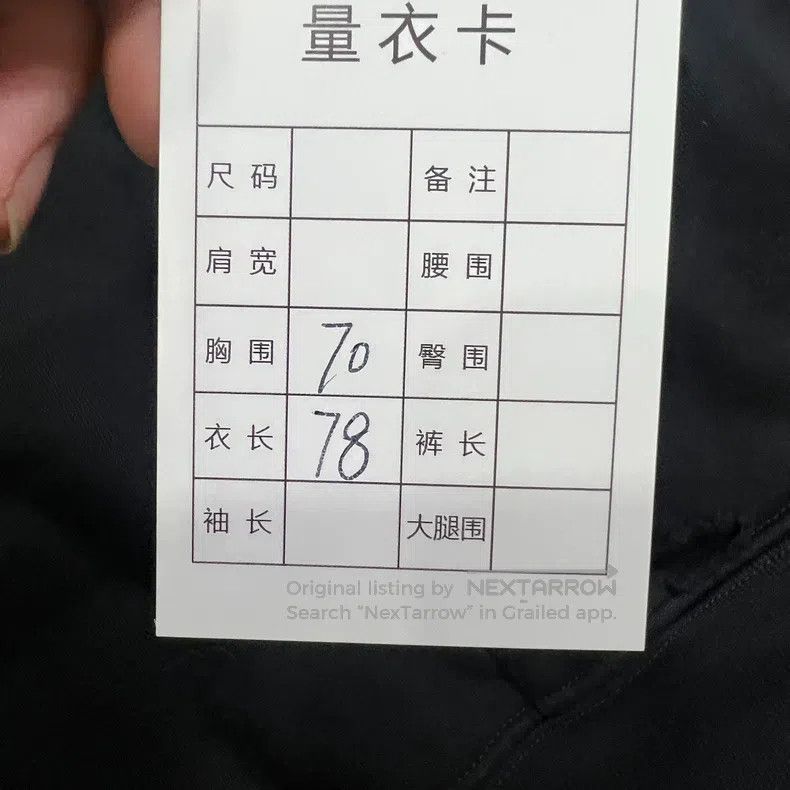 量衣卡
尺码 备注
肩宽 腰围
胸围 70 臀围
衣长 78 裤长
袖长 大腿围
Original listing by NEXTARROW
Search “NexTarrow” in Grailed app.